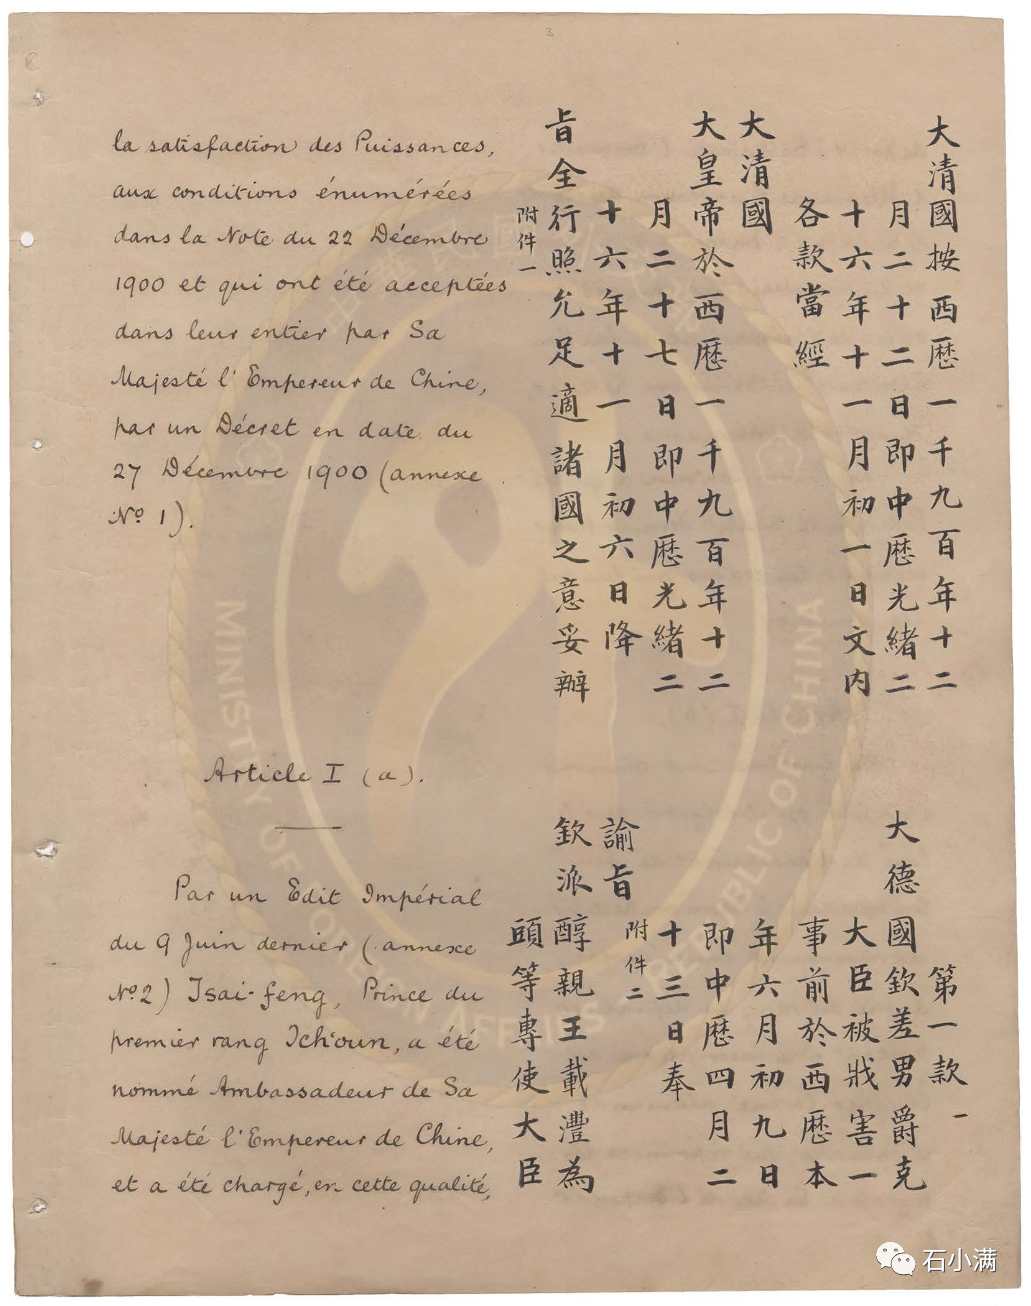 3
la satisfaction des Puissances,
aux conditions énumérées
dans la Note du 22 Décembre
1900 et qui ont été acceptées
dans leur entier par Sa
Majesté l'Empereur de Chine,
par un Décret en date du
27 Décembre 1900 (annexe
Nº 1).
Article I (a).
Par un Edit Impérial
du 9 Juin dernier (annexe
Nº2) Tsai-feng, Prince du
premier rang Tch'oun, a été
nommé Ambassadeur de Sa
Majesté l'Empereur de Chine,
et a été chargé, en cette qualité,
大清國按西厯一千九百年十二
月二十二日即中厯光緒二
十六年十一月初一日文内
各款當經
大清國
大皇帝於西厯一千九百年十二
月二十七日即中厯光緒二
十六年十一月初六日降
旨全行照允足適諸國之意妥辦
附件一
第一款 一
大德國欽差男爵克
大臣被戕害一
事前於西厯本
年六月初九日
即中厯四月二
十三日奉
諭旨
附件二
欽派醇親王載灃為
頭等專使大臣
MINISTRY OF FOREIGN AFFAIRS REPUBLIC OF CHINA
石小满